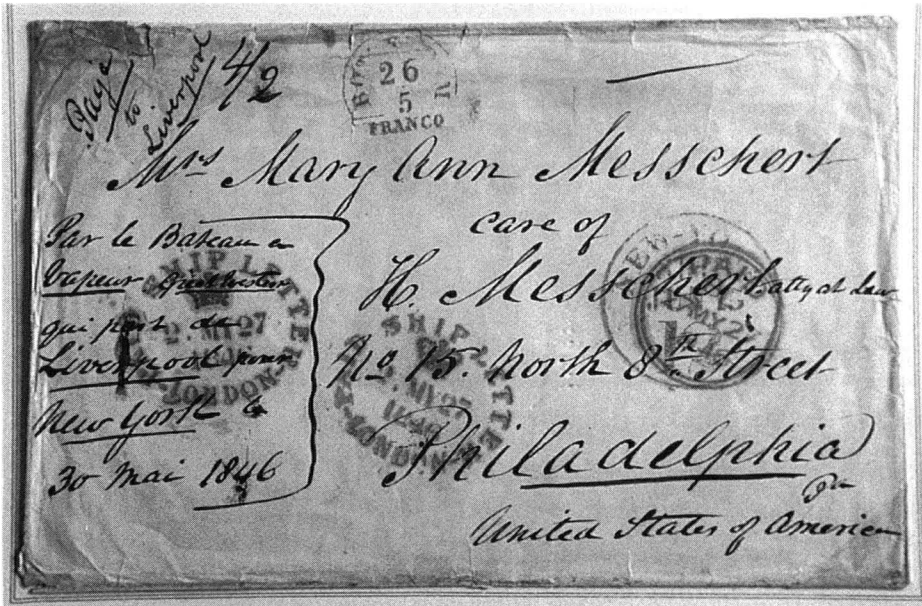 Paid
to
Liverpool
4/2
26
5
FRANCO
Mrs Mary Ann Messchert
care of
H. Messchert atty at Law
No 15. North 8th Street
Philadelphia
Pa
United States of America
Par le Bateau a
Vapeur
qui part de
Liverpool pour
New York le
30 Mai 1846
SHIP LETTER
27
LONDON
SHIP LETTER
LONDON